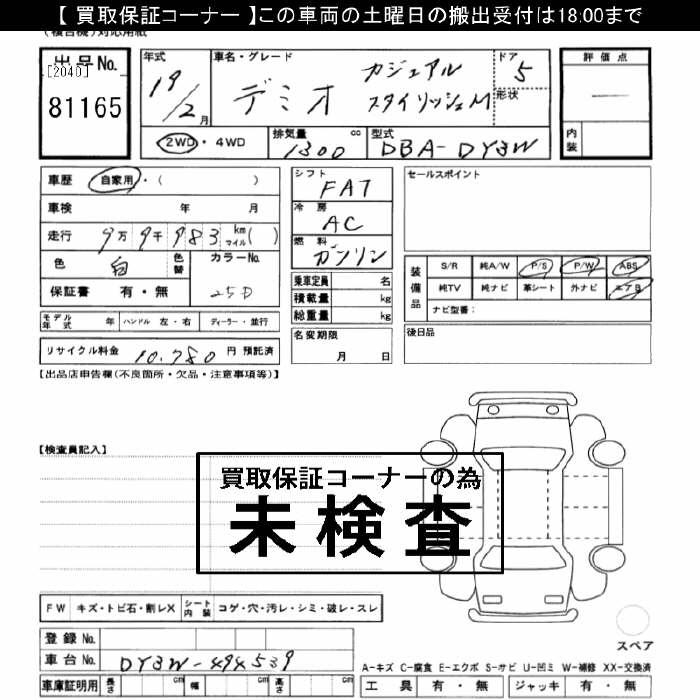 【 買取保証コーナー 】この車両の土曜日の搬出受付は18:00まで
出品No.
[2040]
81165
年式
19/2月
車名・グレード
デミオ
カジュアル
スタイリッシュM
ドア
5
形状
評価点
―
内装
2WD・4WD
排気量 cc
1300
型式
DBA-DY3W
車歴 自家用・( )
車検 年 月
走行 9万9千983 km マイル( )
色 白 色替
カラーNo.
25D
保証書 有・無
シフト
FAT
冷房
AC
燃料
ガソリン
乗車定員 名
積載量 kg
総重量 kg
セールスポイント
装備品
S/R 純A/W P/S P/W ABS
純TV 純ナビ 革シート 外ナビ エアB
ナビ型番:
モデル年式 年 ハンドル 左・右 ディーラー・並行
名変期限
月 日
後日品
リサイクル料金 10,780 円 預託済
【出品店申告欄(不良箇所・欠品・注意事項等)】
【検査員記入】
買取保証コーナーの為
未検査
FW キズ・トビ石・割レX シート内装 コゲ・穴・汚レ・シミ・破レ・スレ
登録 No.
車台 No. DY3W-494539
車庫証明用 長さ cm 幅 cm 高さ cm
スペア
A-キズ C-腐食 E-エクボ S-サビ U-凹ミ W-補修 XX-交換済
工具 有・無 ジャッキ 有・無